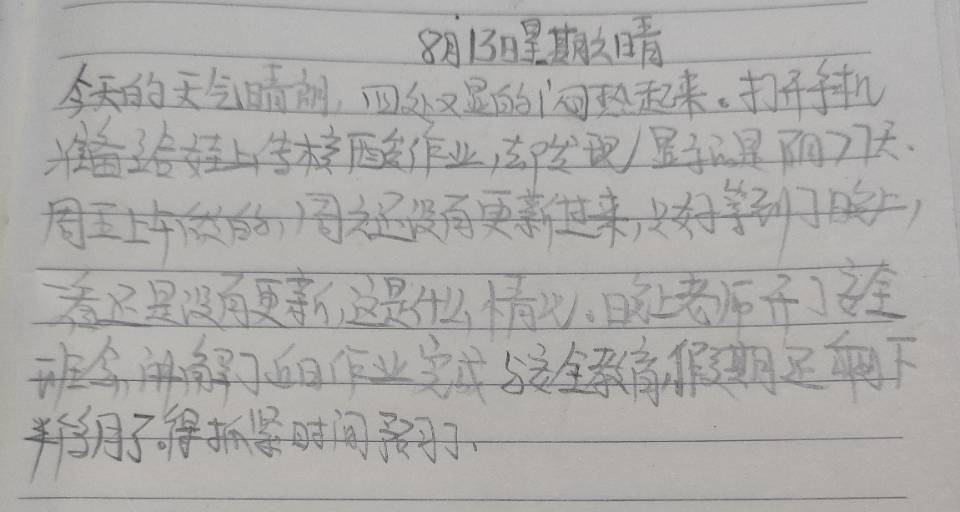 8月13日星期六晴
今天的天气晴朗,四处又显的闷热起来。打开手机
准备给娃上传核酸作业,却发现显示已是阴7天.
周五上午做的,周六还没有更新过来,只好等到了晚上,
一看还是没有更新,这是什么情况。晚上老师开了安全
班会,讲解了近日作业完成与安全教育,假期还剩下
半个月了。得抓紧时间预习了.